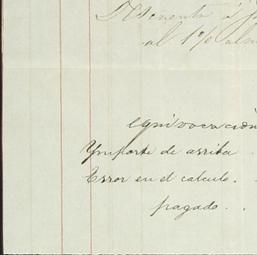 al 1%
equivocación
Ymporte de arriba
Error en el calculo.
pagado.